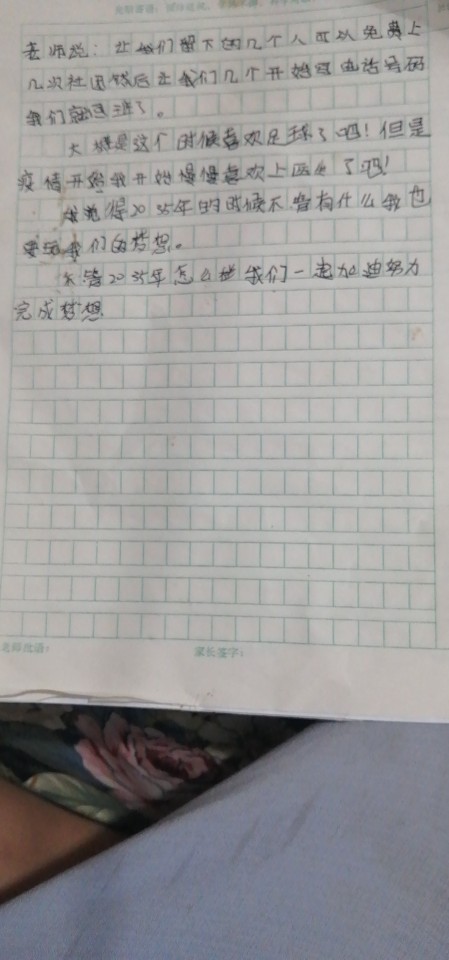 老师说：让我们留下的几个人可以免费上
几次社团然后让我们几个开始写电话号码
我们就进班了。
大概是这个时候喜欢足球了吧！但是
疫情开始我开始慢慢喜欢上医生了吧！
我觉得2035年的时候不管有什么我也
要我们的梦想。
不管2035年怎么样我们一起加油努力
完成梦想
老师批语：
家长签字：